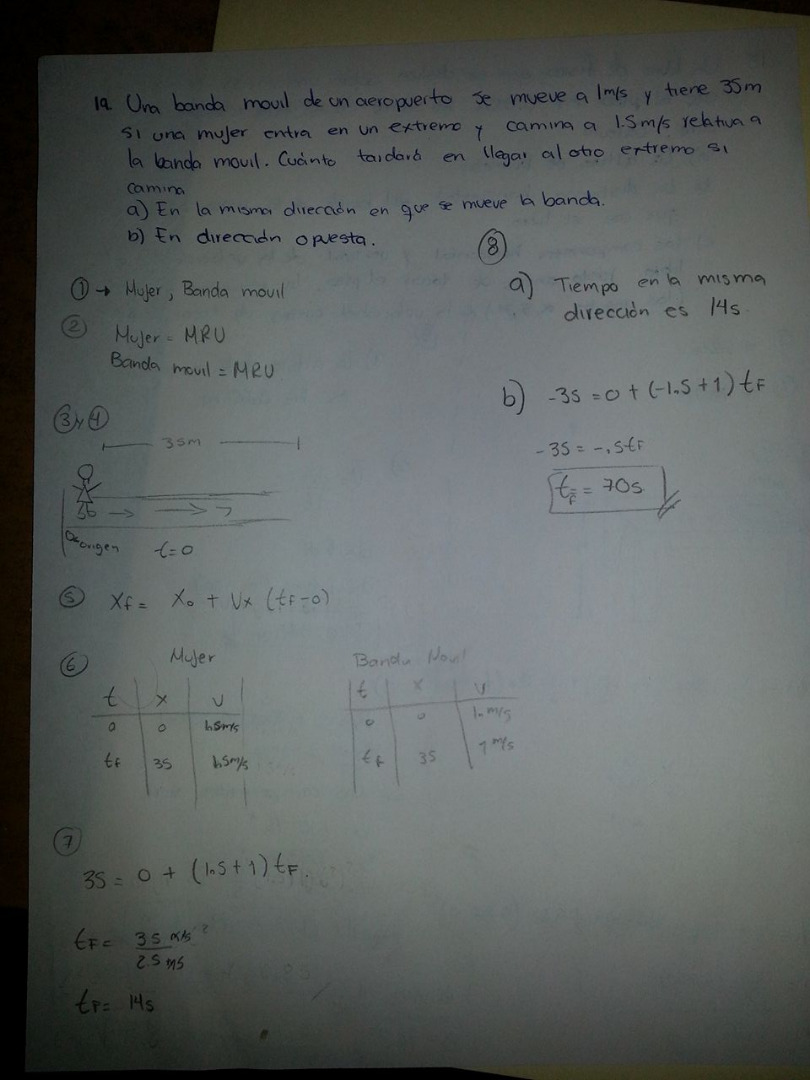 19. Una banda movil de un aeropuerto se mueve a 1m/s y tiene 35m
si una mujer entra en un extremo y camina a 1.5m/s relativa a
la banda movil. Cuánto tardará en llegar al otro extremo si
camina
a) En la misma dirección en que se mueve la banda.
b) En dirección opuesta.
① → Mujer, Banda movil
② Mujer = MRU
Banda movil = MRU
③ y ④
35m
origen t=0
⑤ Xf = X0 + Vx (tf-0)
⑥ Mujer
t x v
0 0 1.5m/s
tf 35 1.5m/s
Banda Movil
t x v
0 0 1. m/s
tf 35 1 m/s
⑦
35 = 0 + (1.5+1) tF.
tF = 35 m/s²
2.5 m/s
tF= 14s
⑧
a) Tiempo en la misma
dirección es 14s
b) -35 = 0 + (-1.5+1) tF
-35 = -.5tF
tF = 70s